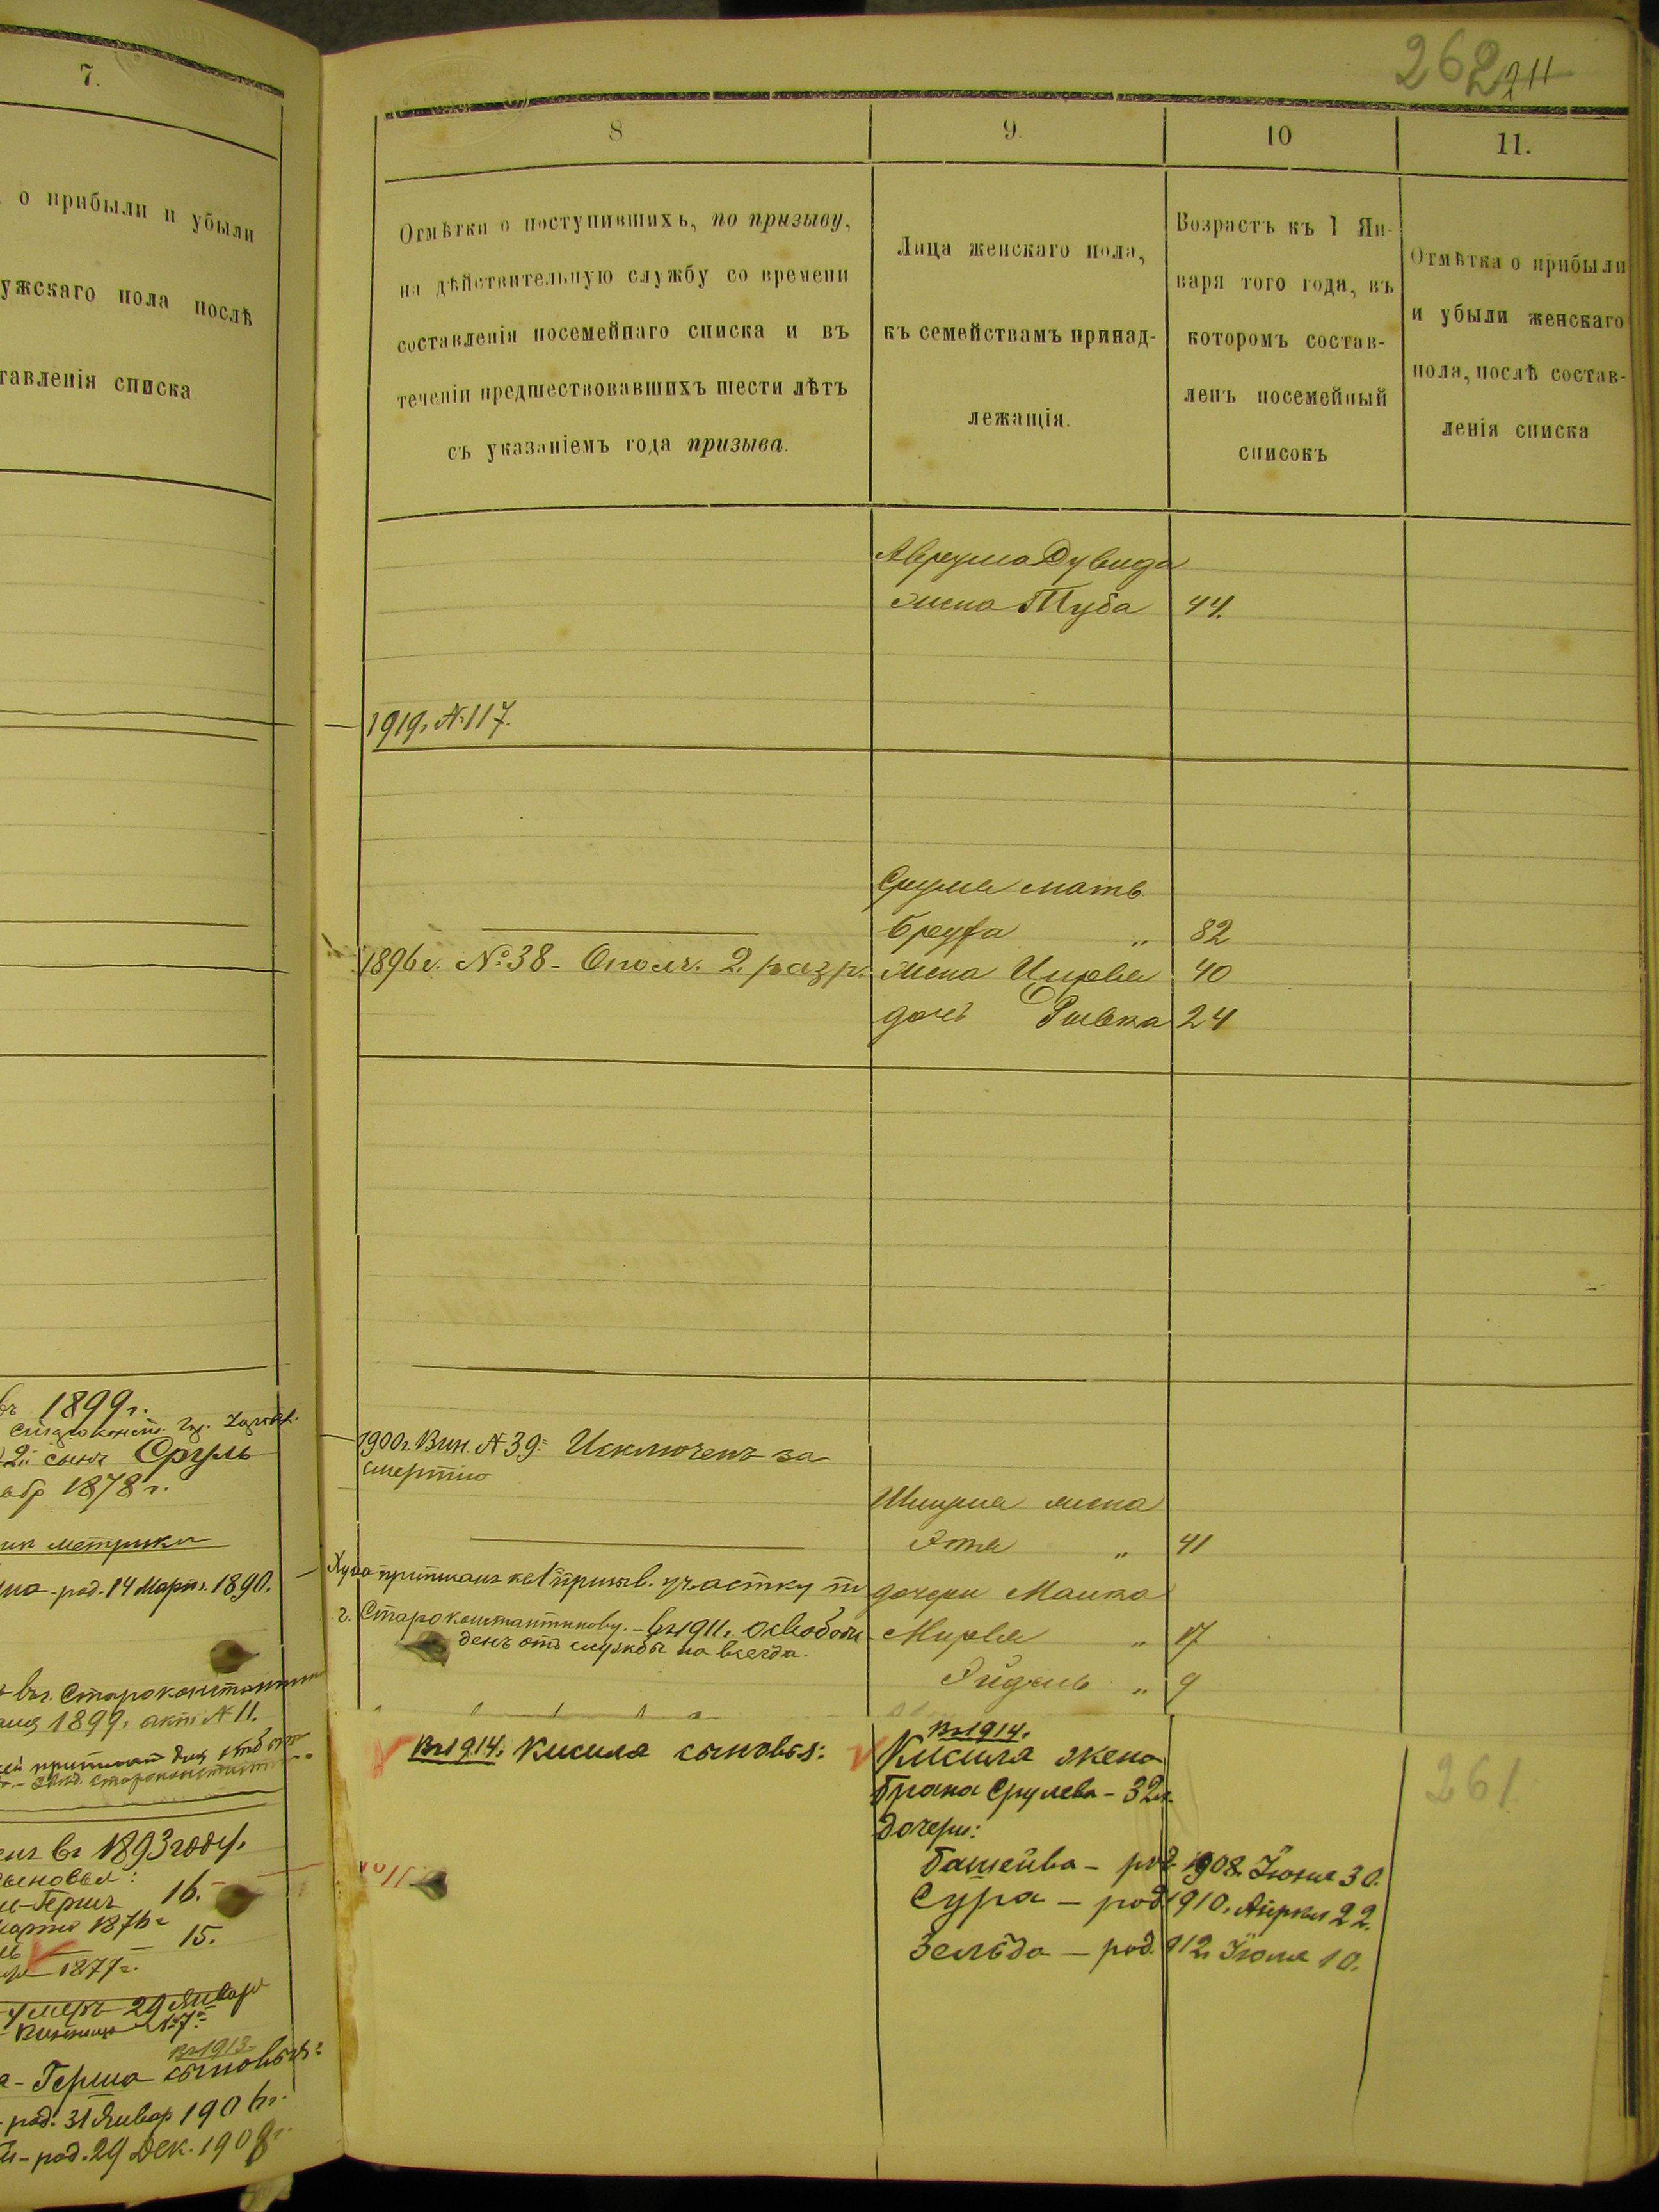 7.
о прибыли и убыли
ужскаго пола послѣ
тавленія списка
въ 1899 г.
2й сынъ Сруль
1878 г.
метрики
род. 14 Март. 1890.
въ г. Староконстантин
1899 г. актъ № 11.
въ 1893 году.
сыновья:
Гершъ 16.
1876 г.
15.
1877 г.
умеръ 29 Январ
Вх 1913
Герша сыновья:
род. 31 Январ 1906 г.
род. 29 Дек. 1908 г.
262
211
8
9.
10
11.
Отмѣтки о поступившихъ, по призыву,
на дѣйствительную службу со времени
составленія посемейнаго списка и въ
теченіи предшествовавшихъ шести лѣтъ
съ указаніемъ года призыва.
Лица женскаго пола,
къ семействамъ принад-
лежащія.
Возрастъ къ 1 Ян-
варя того года, въ
которомъ состав-
ленъ посемейный
списокъ
Отмѣтка о прибыли
и убыли женскаго
пола, послѣ состав-
ленія списка
Аврума Дувида
жена Туба 44.
1919 г. № 117.
Срула мать
82
1896 г. № 38 - Ополч. 2 разр.
жена Цирля 40
дочь Ривка 24
1900 г. Вин. № 39 = Исключенъ за
смертію
Шмуля жена
Этля „ 41
приписанъ къ 1 призыв. участку
г. Староконстантинову. - въ 1911 г. освобож
денъ отъ службы на всегда.
дочери Малка
Мирля „ 17
Эйдель „ 9
Въ 1914 г. Кисиля сыновья:
Въ 1914 г.
Кисиля жена
Срулева - 32 л.
дочери:
Башейва - род. 1908 г. Іюня 30.
Сура - род. 1910 г. Апрѣл 22.
Зельда - род. 912 г. Іюля 10.
261